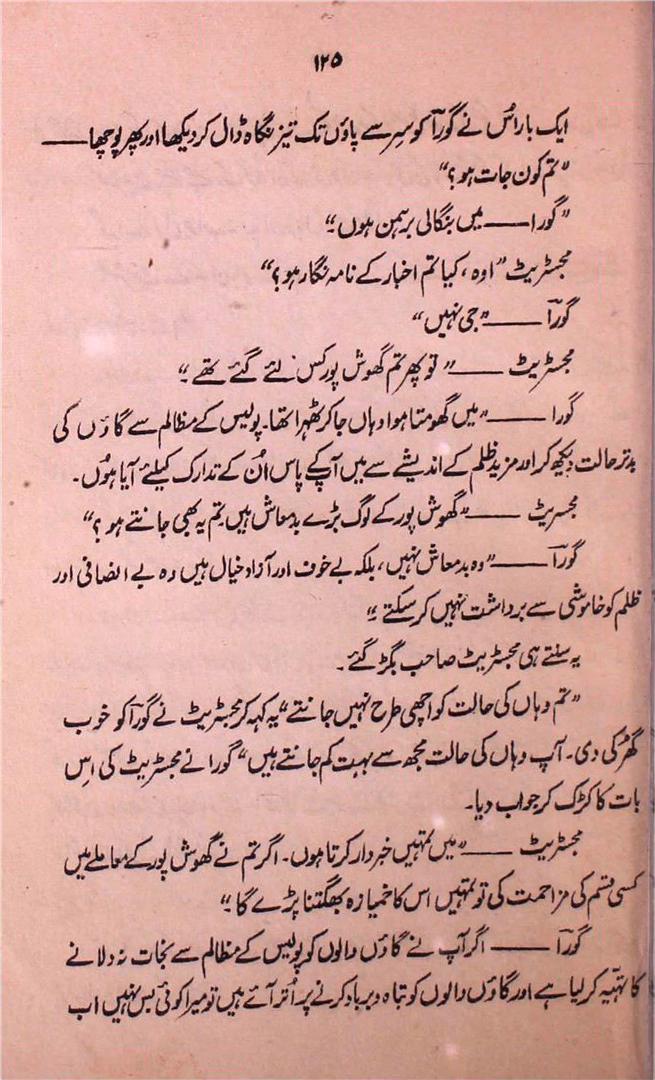 ۱۲۵
ایک بار اُس نے گورآ کو سر سے پاؤں تک تیز نگاہ ڈال کر دیکھا اور پھر پوچھا ——
”تم کون جات ہو؟“
”گورا —— میں بنگالی برہمن ہوں۔“
مجسٹریٹ ”اوہ، کیا تم اخبار کے نامہ نگار ہو؟“
گورآ —— ”جی نہیں“
مجسٹریٹ —— ”تو پھر تم گھوش پور کس لئے گئے تھے۔“
گورا —— ”میں گھومتا ہوا وہاں جا کر ٹھہرا تھا۔ پولیس کے مظالم سے گاؤں کی
بدتر حالت دیکھ کر اور مزید ظلم کے اندیشے سے میں آپ کے پاس اُن کے تدارک کیلئے آیا ہوں۔
مجسٹریٹ —— ”گھوش پور کے لوگ بڑے بدمعاش ہیں تم یہ بھی جانتے ہو؟“
گورآ —— ”وہ بدمعاش نہیں، بلکہ بے خوف اور آزاد خیال ہیں وہ بے انصافی اور
ظلم کو خاموشی سے برداشت نہیں کر سکتے۔“
یہ سنتے ہی مجسٹریٹ صاحب بگڑ گئے۔
”تم وہاں کی حالت کو اچھی طرح نہیں جانتے“ یہ کہہ کر مجسٹریٹ نے گورآ کو خوب
گھڑکی دی۔ آپ وہاں کی حالت مجھ سے بہت کم جانتے ہیں“ گورا نے مجسٹریٹ کی اِس
بات کا کڑک کر جواب دیا۔
مجسٹریٹ —— ”میں تمہیں خبردار کرتا ہوں۔ اگر تم نے گھوش پور کے معاملے میں
کسی قسم کی مزاحمت کی تو تمہیں اس کا خمیازہ بھگتنا پڑے گا۔“
گورآ —— اگر آپ نے گاؤں والوں کو پولیس کے مظالم سے نجات نہ دلانے
کا تہیّہ کر لیا ہے اور گاؤں والوں کو تباہ و برباد کرنے پر اُتر آئے ہیں تو میرا کوئی بس نہیں اب